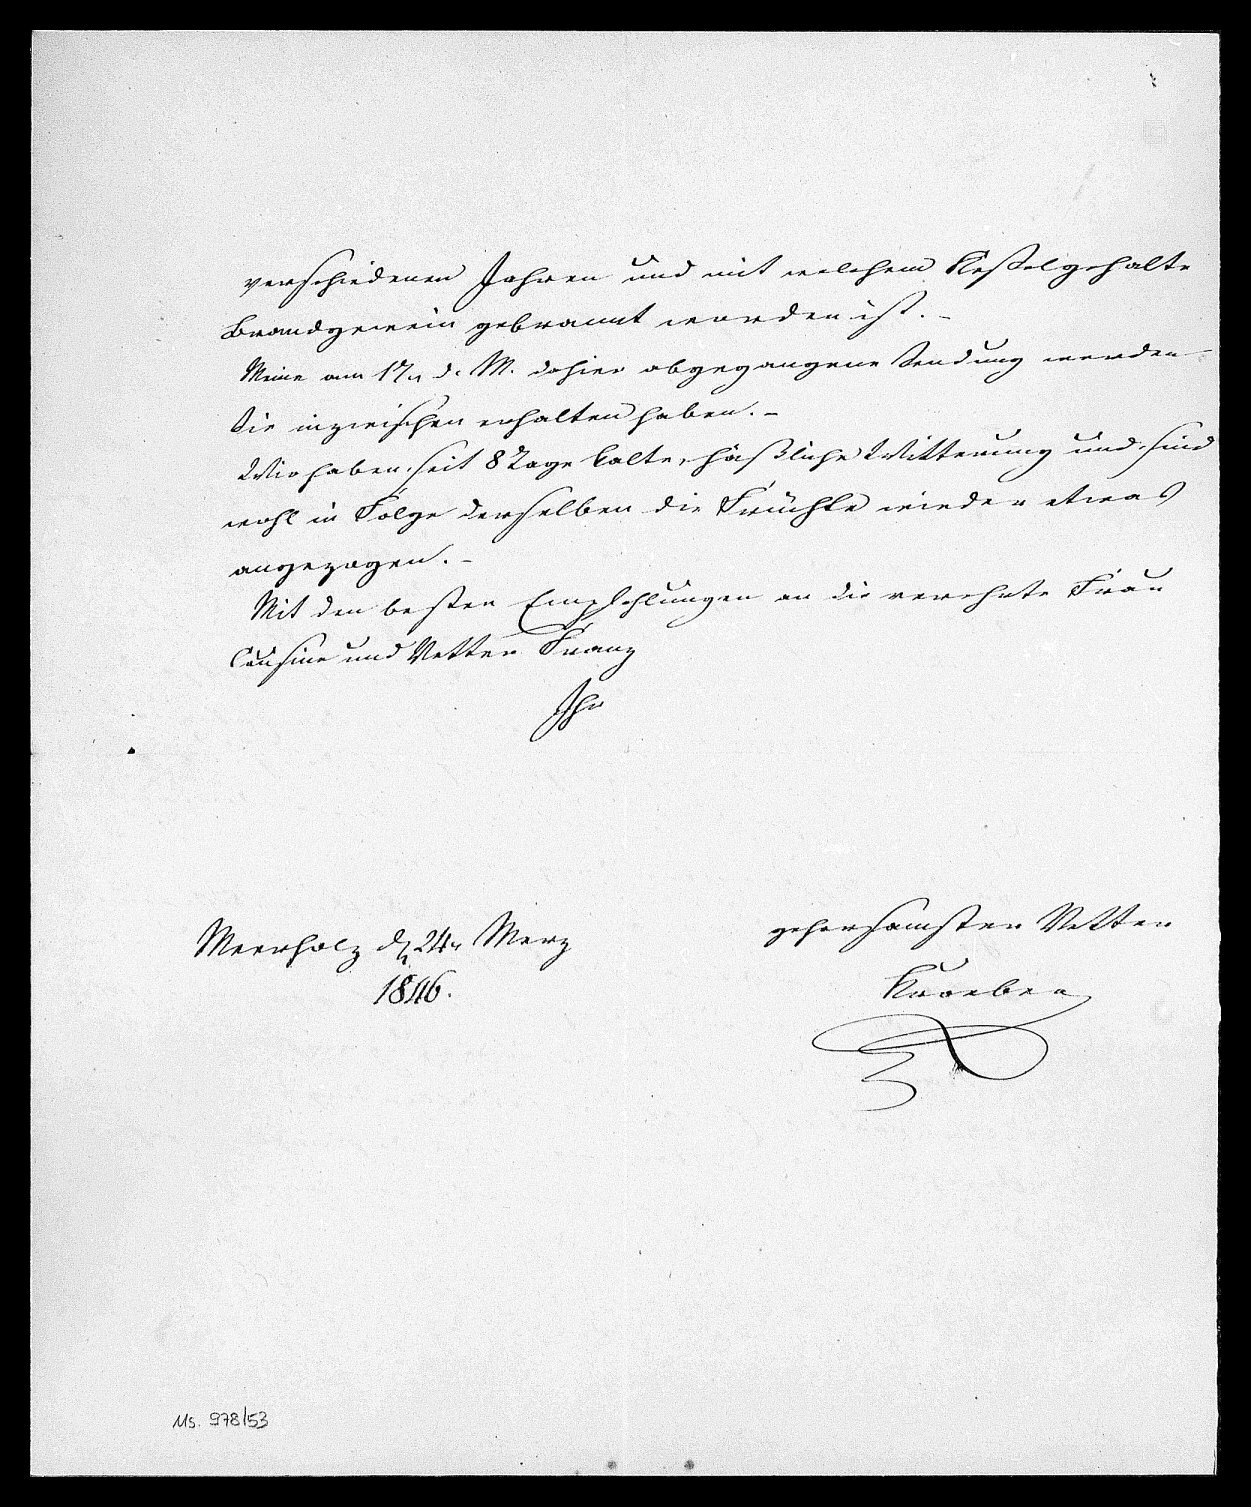 verschiedenen Jahren und mit welchem Keßelgehalte
Brandgewein gebrannt worden ist. –
Meine am 17n d. M. dahier abgegangene Sendung werden
Sie inzwischen erhalten haben. –
Wir haben seit 8 Tage kalte, häßliche Witterung und sind
wohl in Folge derselben die Früchte wieder etwas
angezogen. –
Mit den besten Empfehlungen an die verehrte Frau
Cousine und Vetter Franz
Ihr
gehorsamster Vetter
Meerholz d 24n Merz
1846.
Ms. 978/53